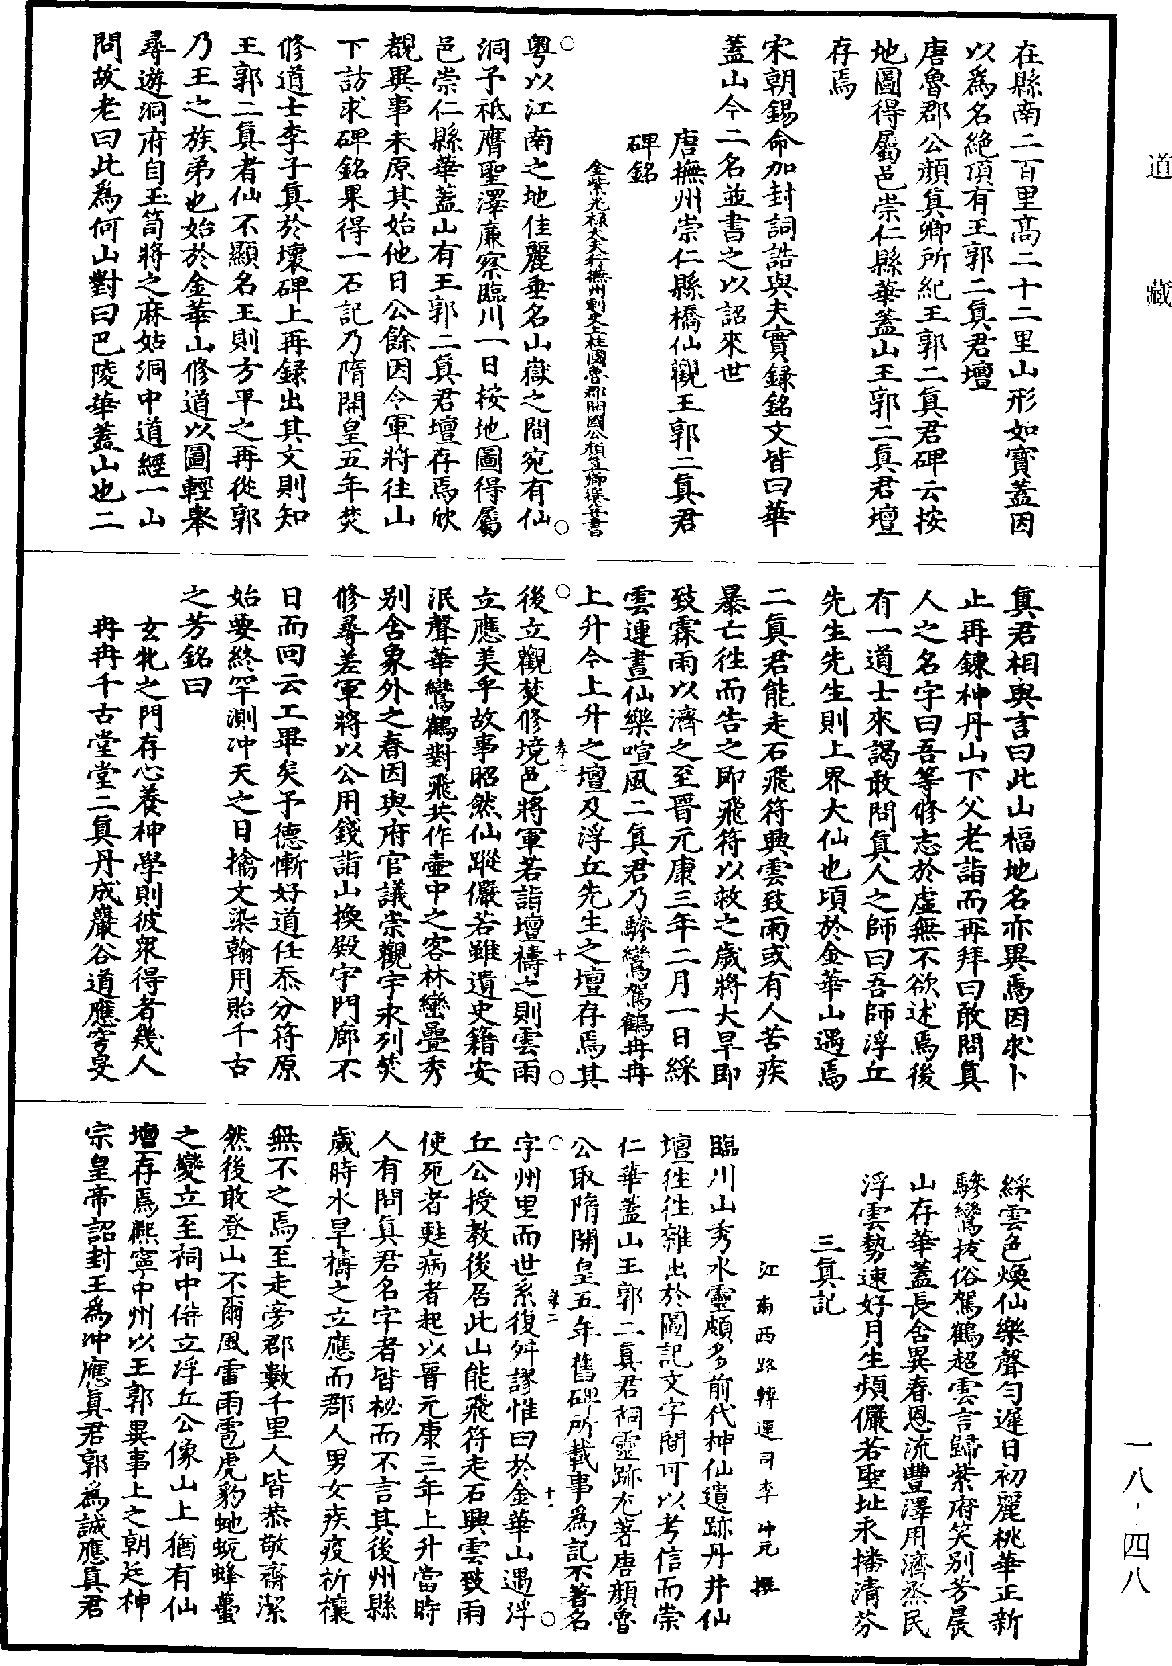 道藏
在縣南二百里高二十二里山形如寶蓋因
以爲名絕頂有王郭二眞君壇
唐魯郡公顏眞卿所紀王郭二眞君碑云按
地圖得屬邑崇仁縣華蓋山王郭二眞君壇
存焉
宋朝錫命加封詞誥與夫實錄銘文皆曰華
蓋山今二名並書之以詔來世
唐撫州崇仁縣橋仙觀王郭二眞君
碑銘
金紫光祿大夫行撫州刺史上柱國魯郡開國公顏眞卿撰并書
粵以江南之地佳麗垂名山嶽之間宛有仙
洞予祗膺聖澤廉察臨川一日按地圖得屬
邑崇仁縣華蓋山有王郭二眞君壇存焉欣
覩異事未原其始他日公餘因令軍將往山
下訪求碑銘果得一石記乃隋開皇五年焚
修道士李子眞於壞碑上再録出其文則知
王郭二眞者仙不顯名王則方平之再從郭
乃王之族弟也始於金華山修道以圖輕舉
尋遊洞府自玉笥將之麻姑洞中道經一山
問故老曰此爲何山對曰巴陵華蓋山也二
眞君相與言曰此山福地名亦異焉因求卜
止再鍊神丹山下父老詣而再拜曰敢問眞
人之名字曰吾等修志於虛無不欲述焉後
有一道士來謁敢問眞人之師曰吾師浮丘
先生先生則上界大仙也頃於金華山遇焉
二眞君能走石飛符興雲致雨或有人苦疾
暴亡往而告之即飛符以救之歲將大旱即
致霖雨以濟之至晉元康三年二月一日綵
雲連晝仙樂喧風二眞君乃驂鸞駕鶴冉冉
上升今上升之壇及浮丘先生之壇存焉其
後立觀焚修境邑將軍若詣壇禱之則雲雨
立應美乎故事昭然仙蹤儼若雖遺史籍安
泯聲華鸞鶴對飛共作壷中之客林巒疊秀
別含象外之春因與府官議崇觀宇永列焚
修尋差軍將以公用錢詣山換殿宇門廊不
日而回云工畢矣予德慚好道任忝分符原
始要終罕測冲天之日摛文染翰用貽千古
之芳銘曰
玄牝之門存心養神學則彼衆得者幾人
冉冉千古堂堂二眞丹成巖谷道應穹旻
綵雲色煥仙樂聲勻遲日初麗桃華正新
驂鸞拔俗駕鶴超雲言歸紫府笑別芳晨
山存華蓋長含異春恩流豐澤用濟烝民
浮雲勢速好月生頻儼若聖址永播清芬
三眞記
江南西路轉運司李冲元撰
臨川山秀水靈頗多前代神仙遺跡丹井仙
壇往往雜出於圖記文字間可以考信而崇
仁華蓋山王郭二眞君祠靈跡尤著唐顏魯
公取隋開皇五年舊碑所載事爲記不著名
字州里而世系復舛謬惟曰於金華山遇浮
丘公授教後居此山能飛符走石興雲致雨
使死者甦病者起以晉元康三年上升當時
人有問眞君名字者皆秘而不言其後州縣
歲時水旱禱之立應而郡人男女疾疫祈禳
無不之焉至走旁郡數千里人皆恭敬齋潔
然後敢登山不爾風雷雨雹虎豹虵蜿蜂蠆
之變立至祠中併立浮丘公像山上猶有仙
壇存焉熙寧中州以王郭異事上之朝廷神
宗皇帝詔封王爲冲應眞君郭爲誠應眞君
一八‧四八